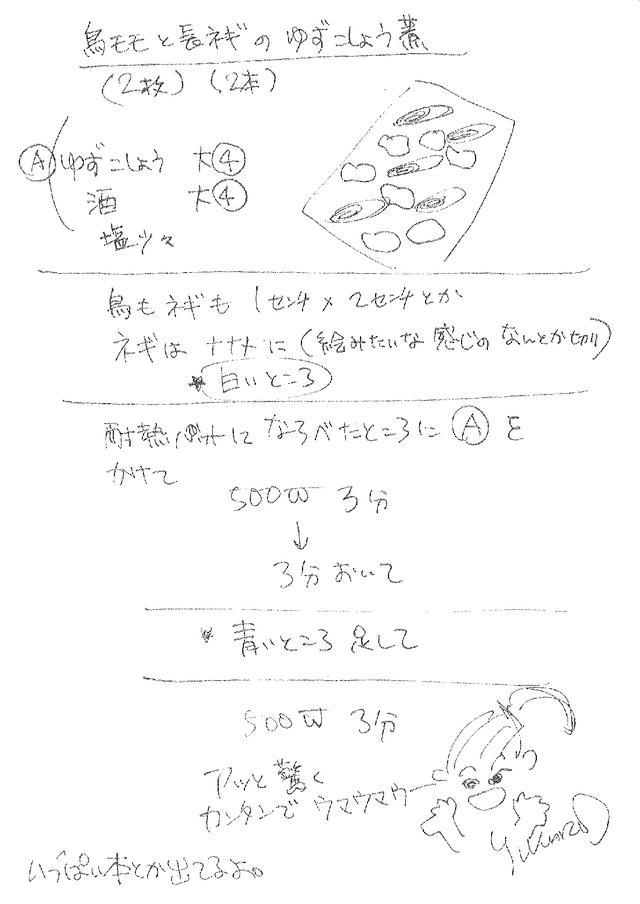 鳥モモと長ネギのゆずこしょう蒸
(2枚) (2本)
Ⓐ ゆずこしょう 大④
酒 大④
塩少々
鳥もネギも 1センチ×2センチとか
ネギは ナナメに (絵みたいな感じのなんとか切り)
★ 白いところ
耐熱バットに ならべたところに Ⓐ を
かけて
500W 3分
↓
3分おいて
★ 青いところ 足して
500W 3分
アッと驚く
カンタンで ウマウマウー
いっぱい本とか出てるよ。